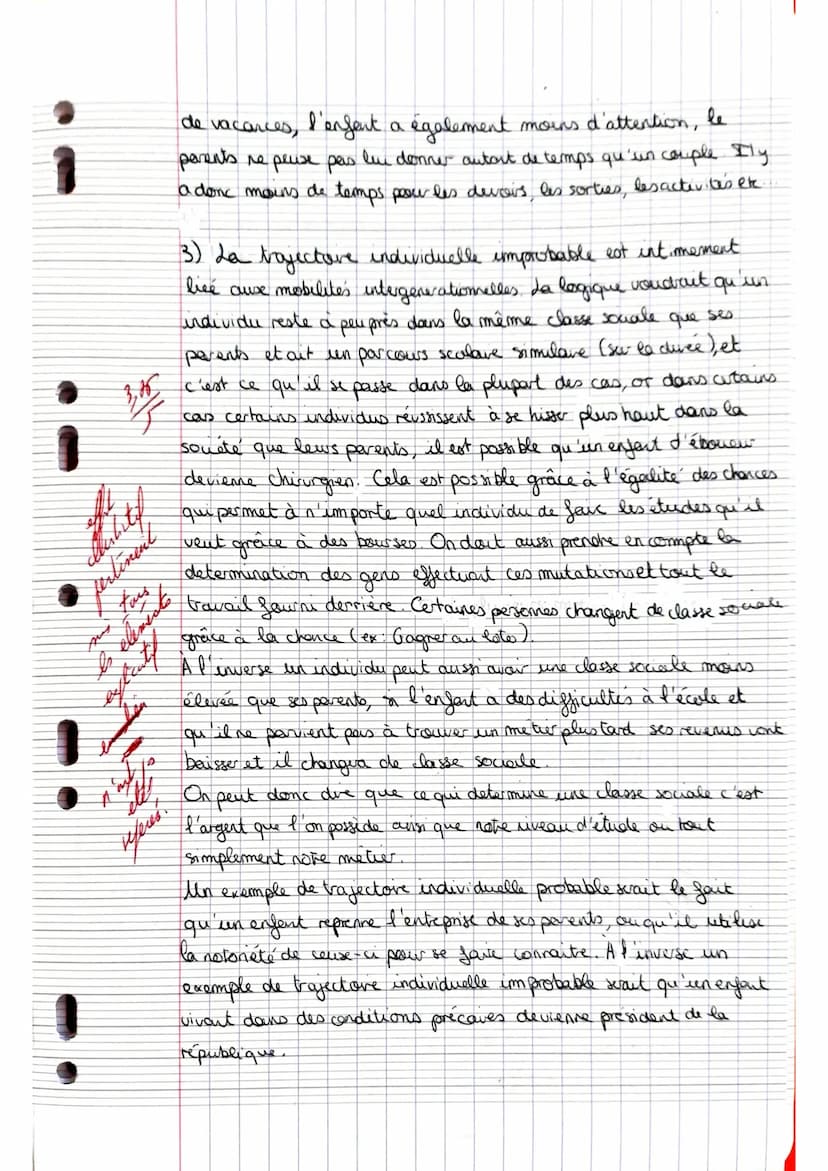 de vacances, l'enfant a également moins d'attention, le
parents ne peux pas lui donner autant de temps qu'un couple. Il y
a donc moins de temps pour les devoirs, les sorties, les activités etc...
3) La trajectoire individuelle improbable est intimement
liée aux mobilités intergenerationnelles. La logique voudrait qu'un
individu reste à peu près dans la même classe sociale que ses
parents et ait un parcours scolaire similaire (sur la durée), et
3,75
5
c'est ce qu'il se passe dans la plupart des cas, or dans certains
cas certains individus réussissent à se hisser plus haut dans la
société que leurs parents, il est possible qu'un enfant d'éboueur
devienne chirurgien. Cela est possible grâce à l'égalité des chances
qui permet à n'importe quel individu de faire les études qu'il
veut grâce à des bourses. On doit aussi prendre en compte la
determination des gens effectuant ces mutations et tout le
travail fourni derrière. Certaines personnes changent de classe sociale
grâce à la chance (ex: Gagner au loto).
effort
pertinent
tous
les éléments
explicatif
n'ont
été
À l'inverse un individu peut aussi avoir une classe sociale moins
élevée que ses parents, si l'enfant a des difficultés à l'école et
qu'il ne parvient pas à trouver un metier plus tard ses revenus vont
baisser et il changera de classe sociale.
On peut donc dire que ce qui determine une classe sociale c'est
l'argent que l'on possède ainsi que notre niveau d'étude ou tout
simplement notre métier.
Un exemple de trajectoire individuelle probable serait le fait
qu'un enfant reprenne l'enteprise de ses parents, ou qu'il utilise
la notoriété de ceux-ci pour se faire connaitre. À l'inverse un
exemple de trajectoire individuelle improbable serait qu'un enfant
vivant dans des conditions précaires devienne président de la
république.